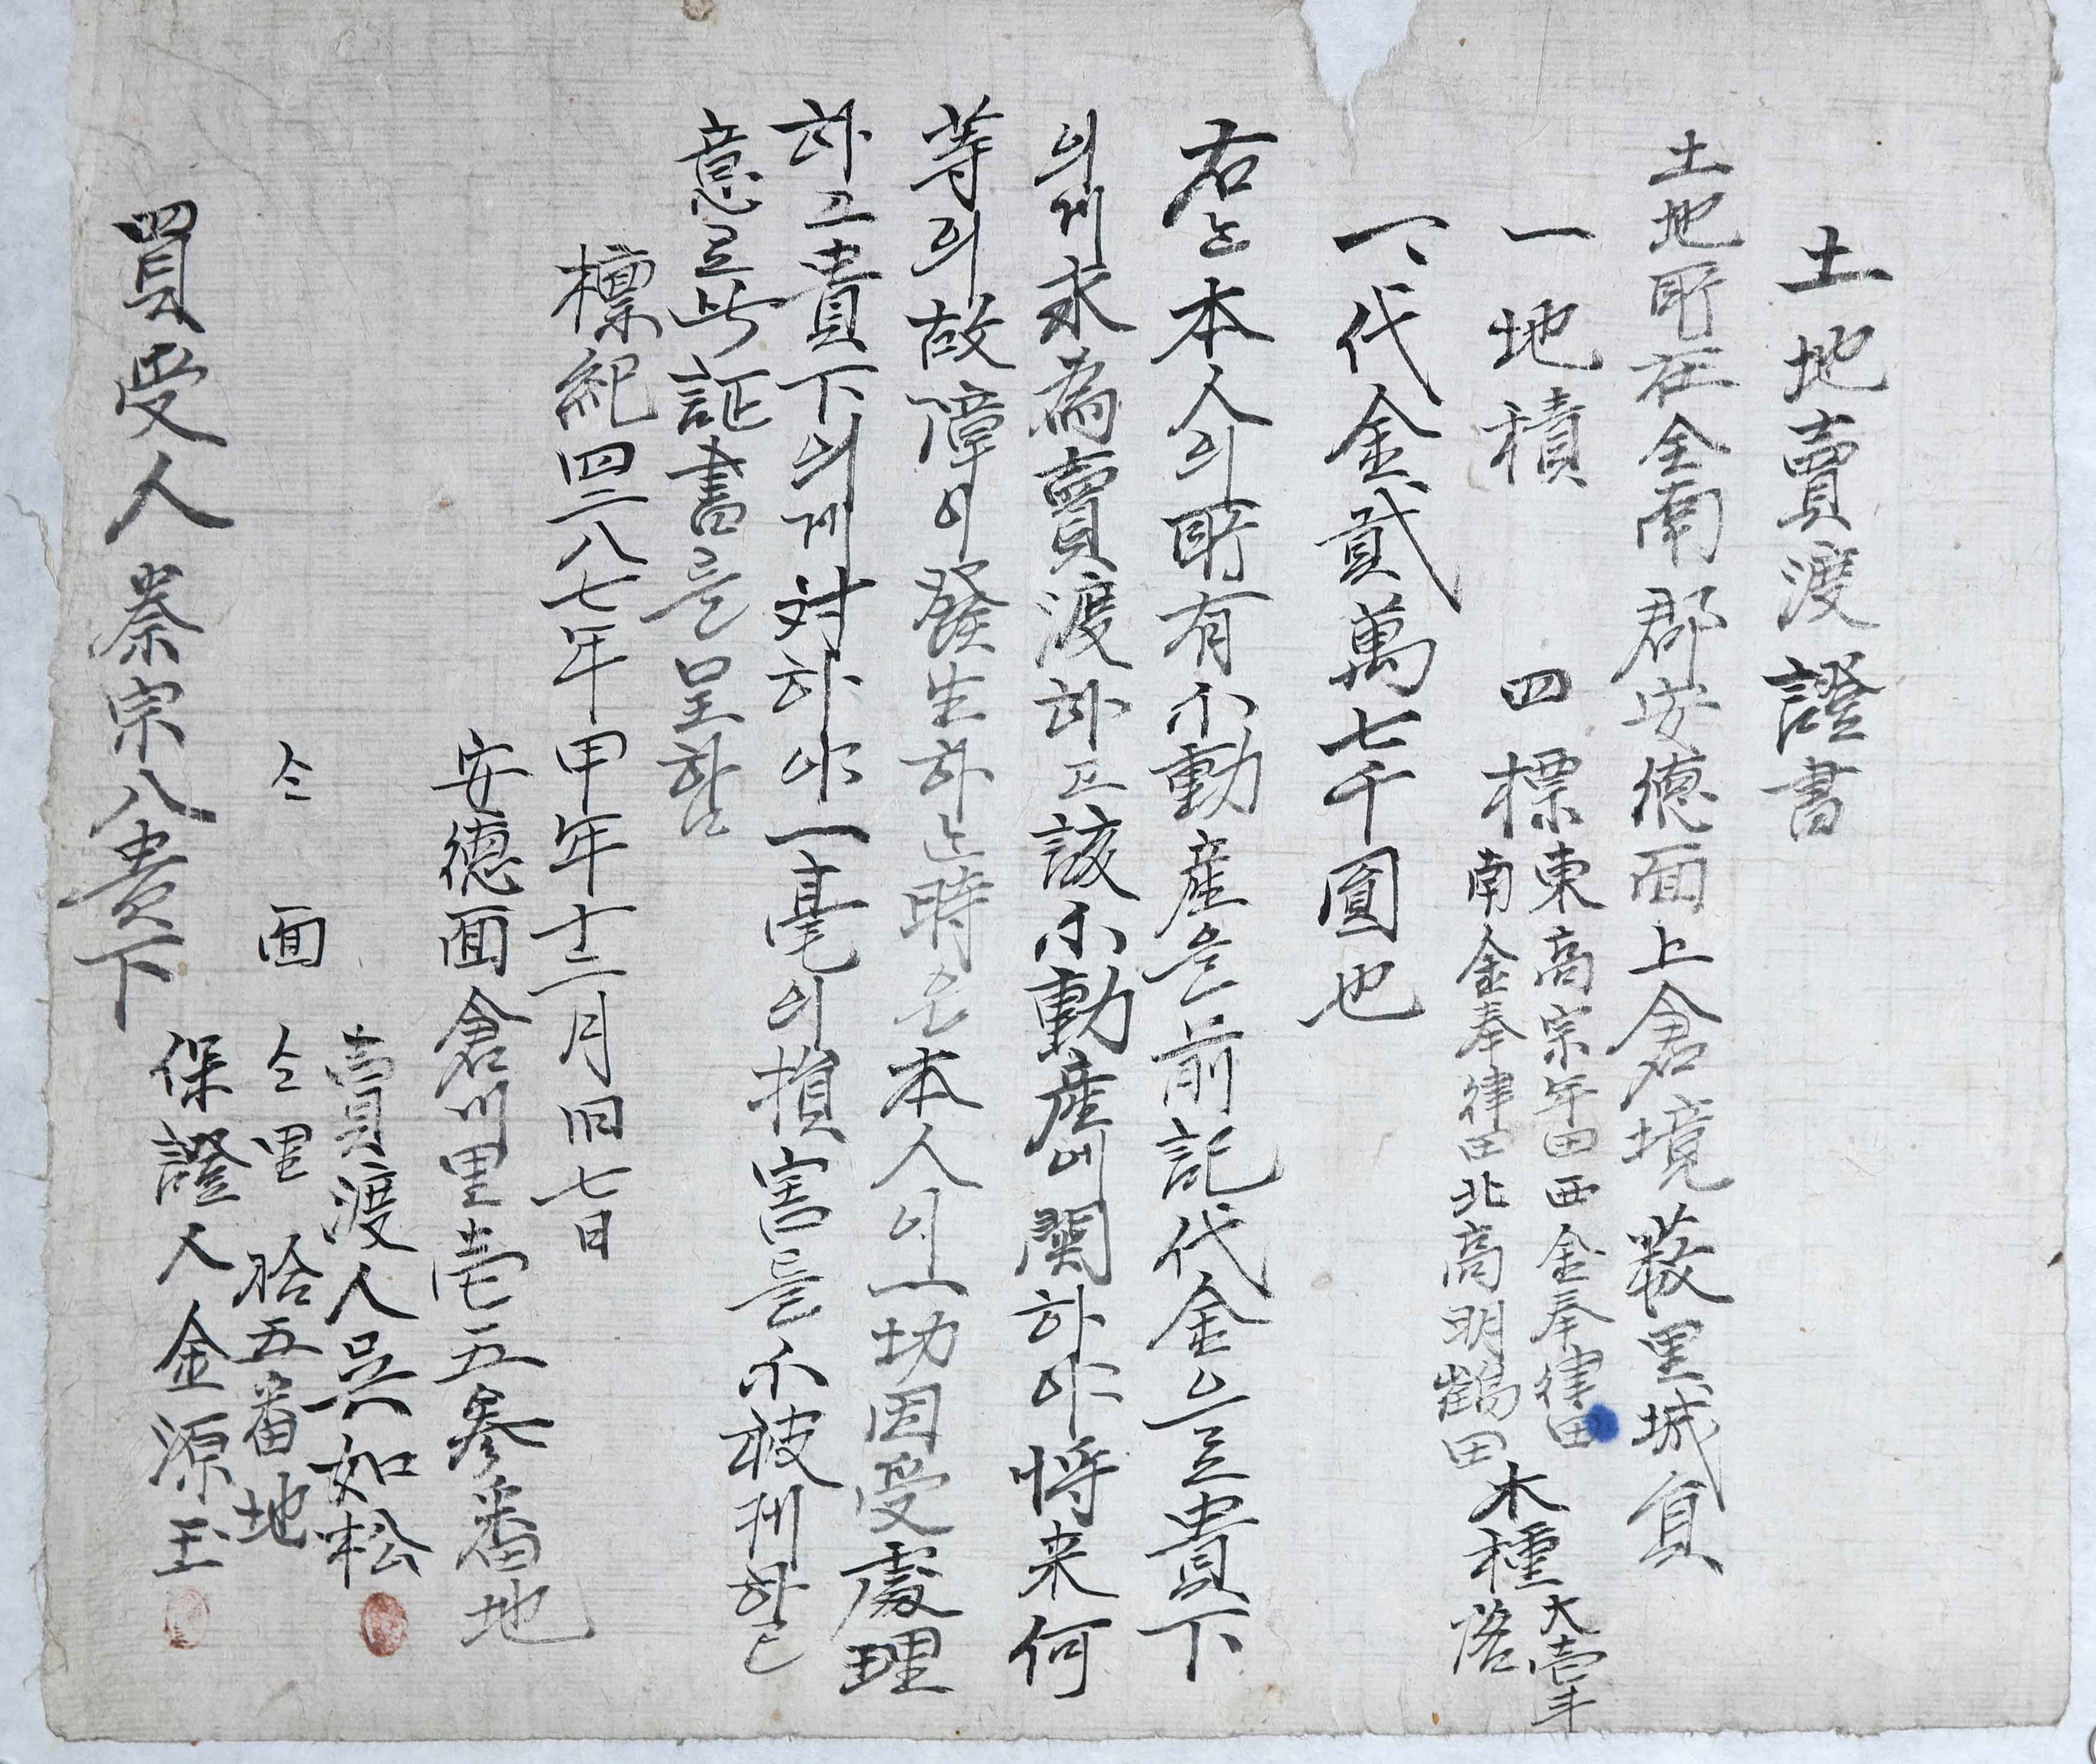 土地賣渡證書
土地所在全南郡安德面上倉境藪里城員
一 地積 四標 東高宗年田西金奉律田 南金奉律田北高明鶴田 木種 大壹斗
一、代金貳萬七千圓也
右는本人의所有不動産을前記代金으로貴下
의게永爲賣渡하고該不動産에關하야將来何
等의故障이發生하는時은本人의一切因受處理
하고貴下의게対하야一毫의損害를不被케할
意로此証書를呈함
檀紀四二八七年甲午年十二月旧七日
安德面倉川里壱五参番地
賣渡人吳如松
仝 面 仝里 拾五番地
保證人金源玉
買受人 秦宗八貴下